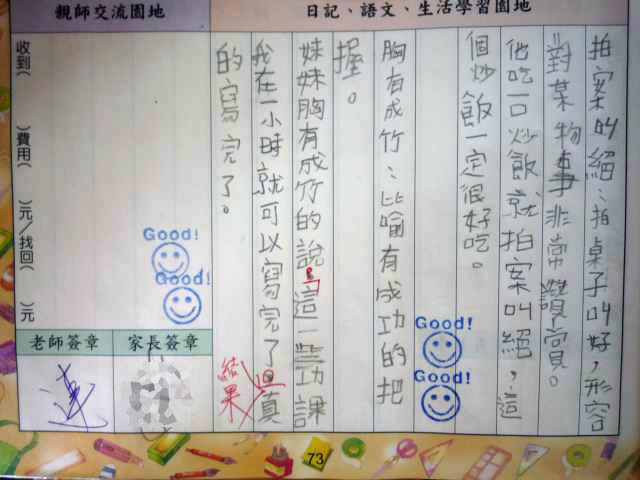 親師交流園地
日記、語文、生活學習園地
拍案叫絕：拍桌子叫好，形容
對某物事非常讚賞。
他吃一口炒飯就拍案叫絕，這
個炒飯一定很好吃。
胸有成竹：比喻有成功的把
握。
妹妹胸有成竹的說：「這一些功課
我在一小時就可以寫完了。真
的寫完了。
結果
收到（　）費用（　）元／找回（　）元
Good!
Good!
Good!
Good!
老師簽章
家長簽章
73